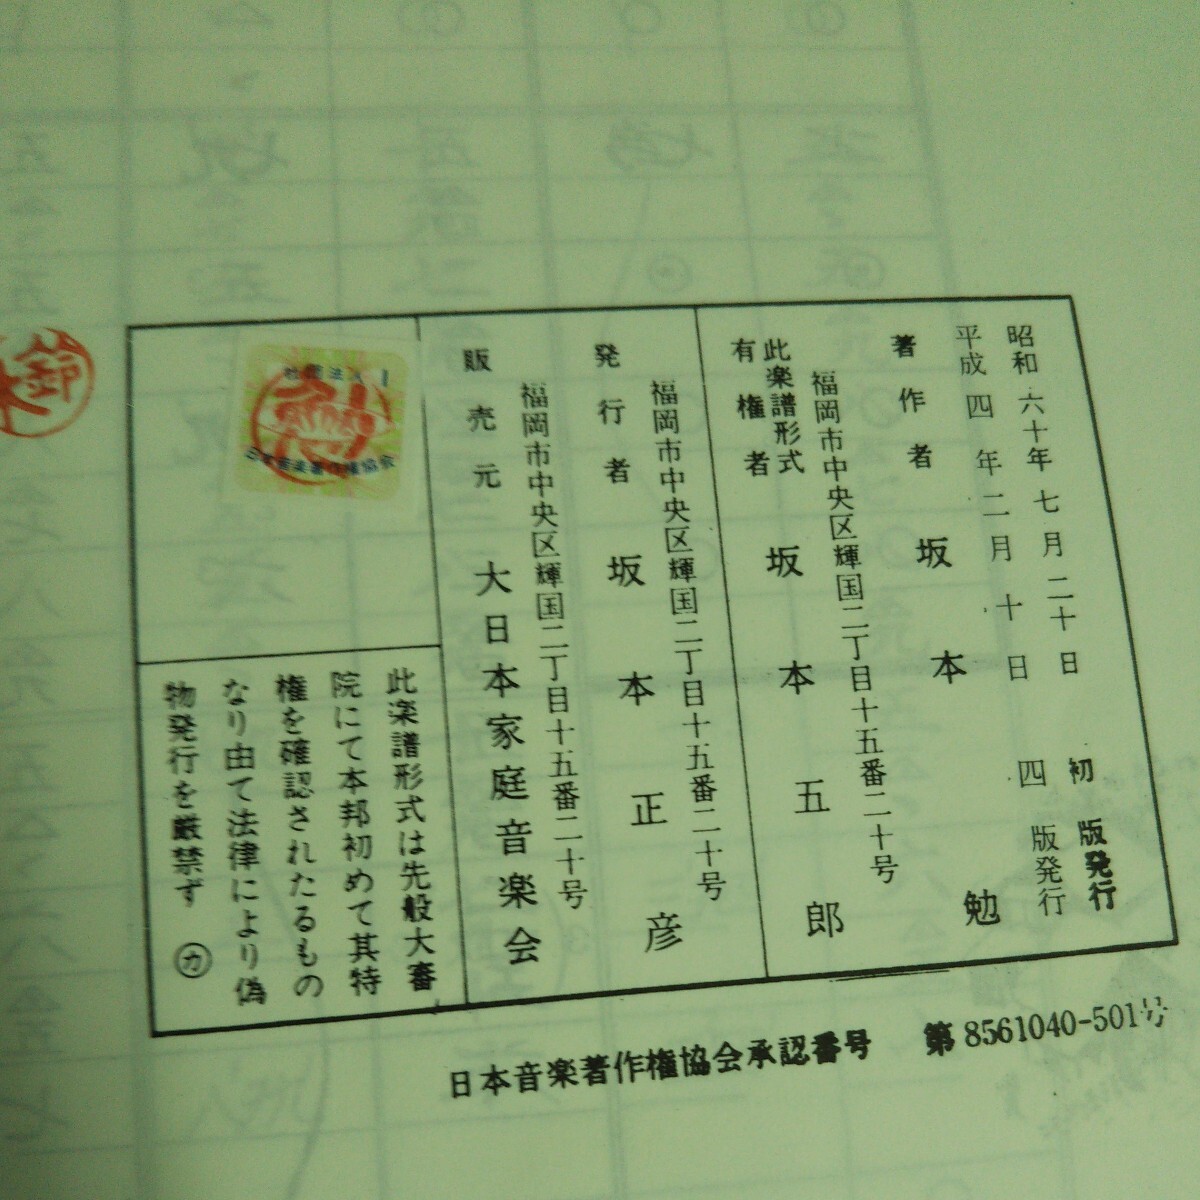 昭和六十年七月二十日 初版発行
平成四年二月十日 四版発行
著作者 坂本勉
福岡市中央区輝国二丁目十五番二十号
此楽譜形式
有権者 坂本五郎
福岡市中央区輝国二丁目十五番二十号
発行者 坂本正彦
福岡市中央区輝国二丁目十五番二十号
販売元 大日本家庭音楽会
社団法人
日本音楽著作権協会
此楽譜形式は先般大審
院にて本邦初めて其特
権を確認されたるもの
なり由て法律により偽
物発行を厳禁ず ㋕
日本音楽著作権協会承認番号 第8561040-501号